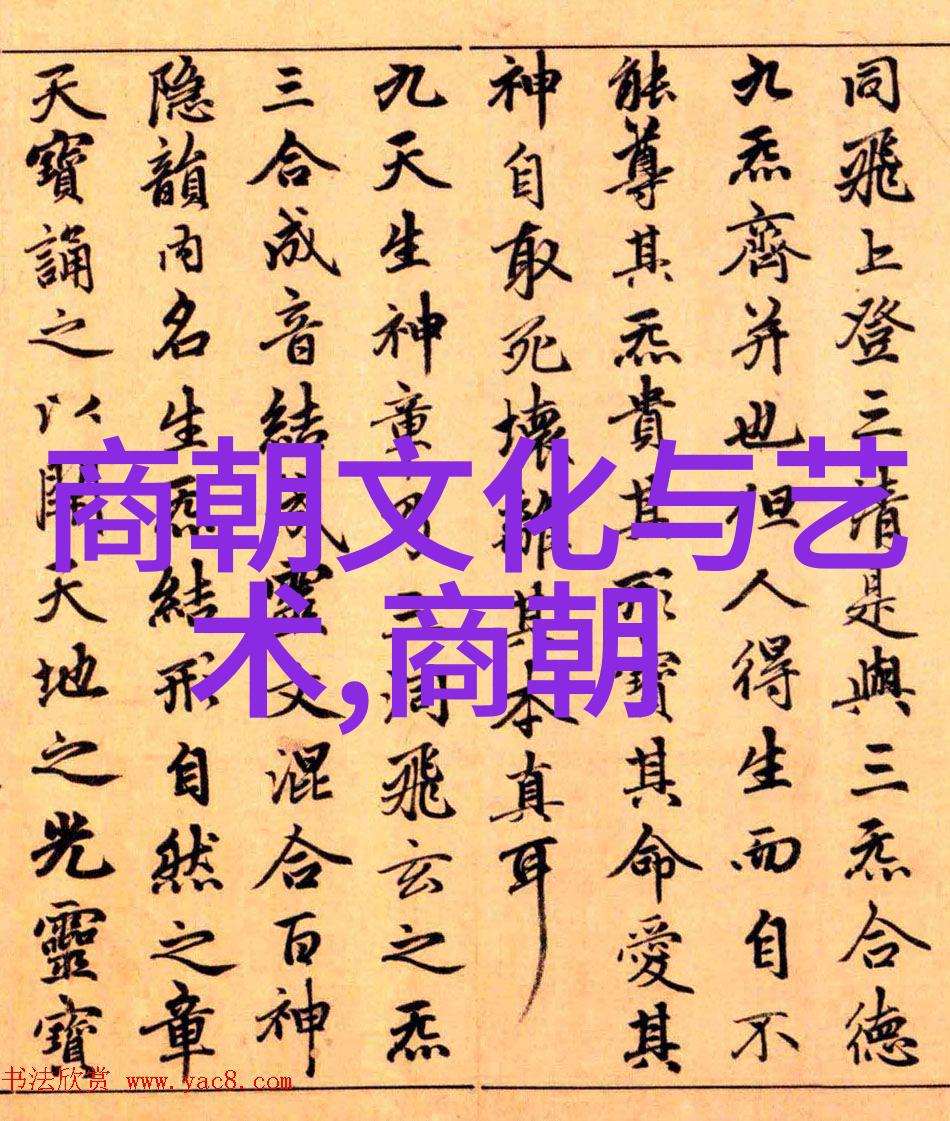 同飛上登三清是與三炁合德
九炁齊并也但人得生而自不
能尊其炁貴其形寶其命愛其
神自取死壞離其本真耳
九天生神章乃三洞飛玄之炁
三合成音結成靈文混合百神
隐韻内名生炁結形自然之章
天寶誦之以開天地之光靈寶
商朝文化与艺
术,商朝
书法欣赏 www.yac8.com